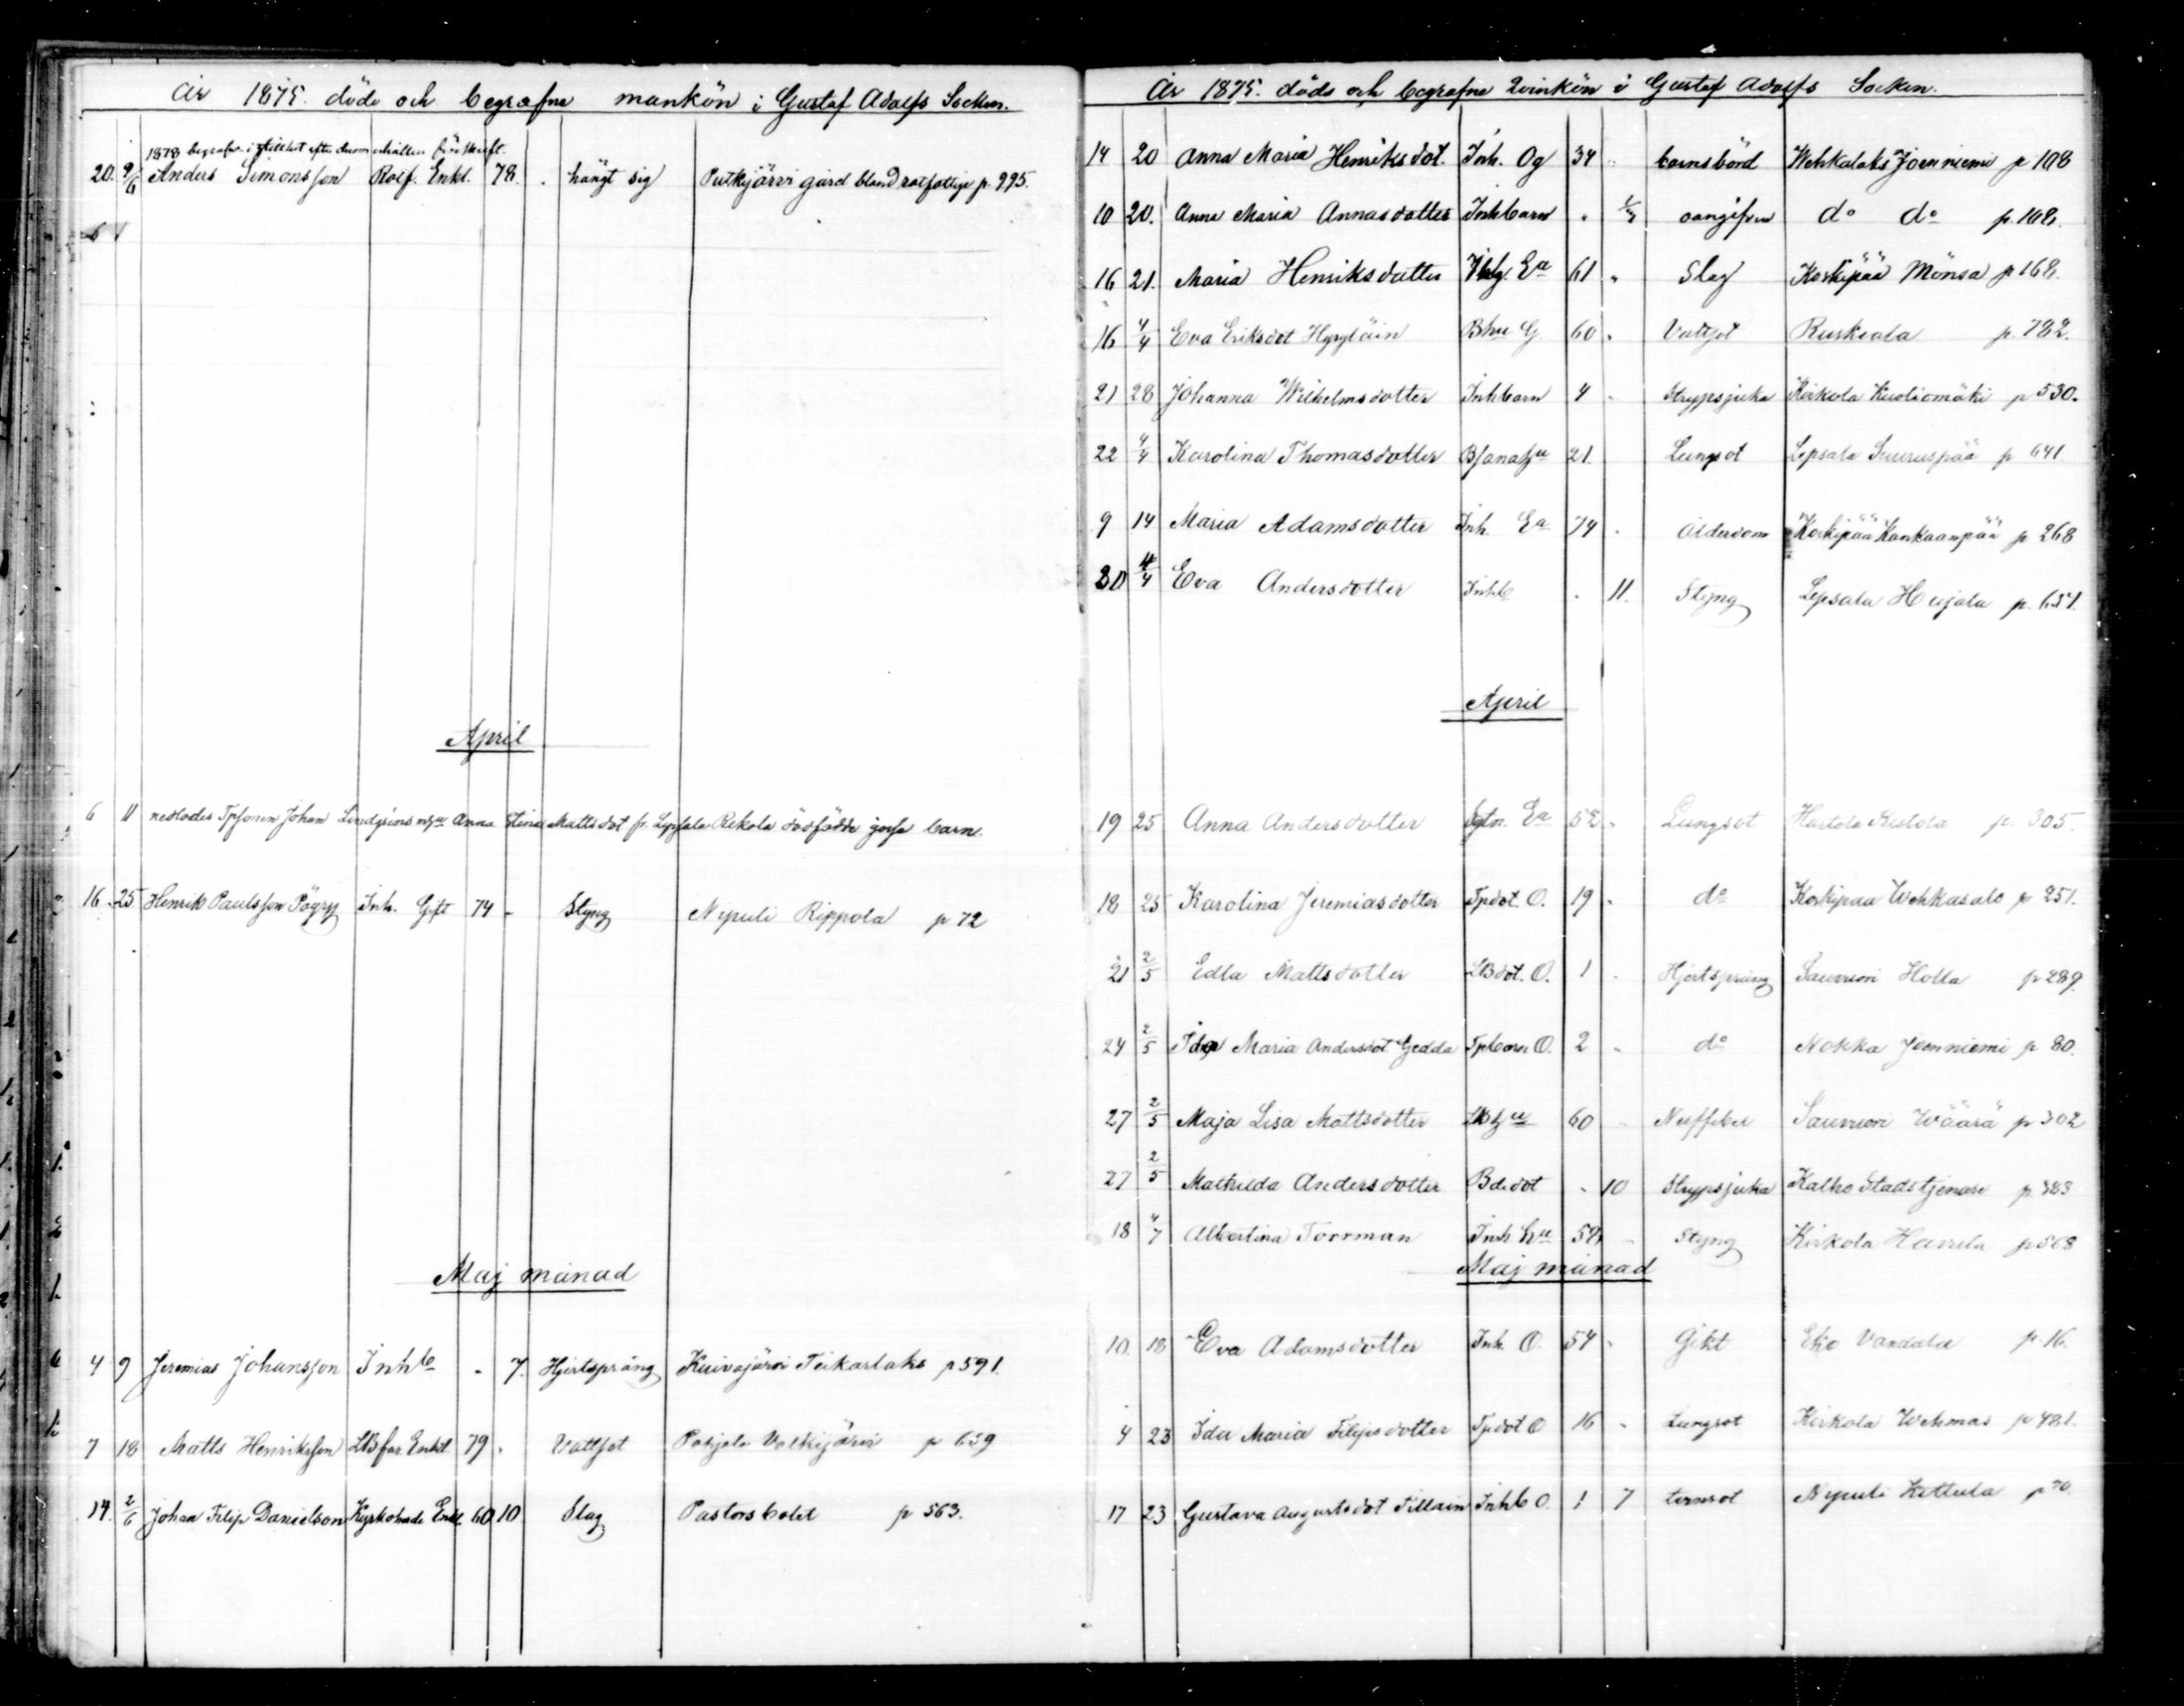 År 1875. döde och begrafne mankön i Gustaf Adolfs Socken.
1878 begrafven i stillhet efter derom erhållen föreskrift.
20. 9/6 Anders Simonsson Rotf. Enkl. 78. . hängt sig Putkijärvi gård bland rotfattige p. 995.
April
6 11 nedlades Tpsonen Johan Lindgréns m hu Anna Stina Mattsdot fr. Lepsala Rekola dödfödde gosse barn.
16 25 Henrik Paulsson Pögry Inh. Gift 74 - Styng Nipuli Rippola p 72
Maj månad
4 9 Jeremias Johansson Inhb - 7. Hjertsprång Kuivajärvi Teikarlaks p 591.
7 18 Matts Henriksson LBfar Enkl 79 . Vattsot Pohjola Valkijärvi p 659
14. 2/6 Johan Filip Danielson Kyrkohade Enkl. 60 10 Slag Pastorsbolet p 563.
År 1875. döde och begrafne Qvinkön i Gustaf Adolfs Socken.
14 20 Anna Maria Henriksdot. Inh. Og 34 " barnsbörd Wehkalaks Joenniemi p 108
10 20. Anna Maria Annasdotter Inhbarn " oangifven do do p. 108.
16 21. Maria Henriksdotter Ea 61 " Slag Korkipää Mönsa p 168.
16 4/4 Eva Eriksdot Hyryläin Bhu G 60 " Vattsot Ruskeala p. 782.
21 28 Johanna Wilhelmsdotter Inhbarn 4 " Strypsjuka Kirkola Kuoliomäki p 530.
22 4/4 Karolina Thomasdotter 21. Lungsot Lepsala Suuruspää p 641
9 14 Maria Adamsdotter Inh. Ea 74 . Ålderdom Korkipää Kankaanpää p 268
30 4/4 Eva Andersdotter Inhb . 11. Styng Lepsala Heijala p. 651.
April
19 25 Anna Andersdotter Ea 52 " Lungsot Hartola Ristola p. 305.
18 25 Karolina Jeremiasdotter Tpdot. O. 19 " do Korkipää Wehkasalo p 251.
21 2/5 Edla Mattsdotter LBdot. O. 1 " Hjertsprång Saurvuori Holla p 289.
24 2/5 Ida Maria Andersdot Gedda Tpbarn O. 2 " do Nokka Joenniemi p 80.
27 2/5 Maja Lisa Mattsdotter LBhu 60 " Nerffeber Saurvuori Wäärä p 302
27 2/5 Mathilda Andersdotter Bdedot " 10 Strypsjuka Kalho Stadstjenare p. 383
18 4/7 Albertina Toorman Inh hu 52 " Styng Kirkola Havula p 568
Maj månad
10. 18 Eva Adamsdotter Inh O. 54 " Gikt Eko Vandala p. 16.
4 23 Ida Maria Filipsdotter Tpdot O 16 " Lungsot Kirkola Wehmas p 481.
17 23 Gustava Augustsdot Tillain Inhb O. 1 7 tvinsot Nipuli Kettula p 70.